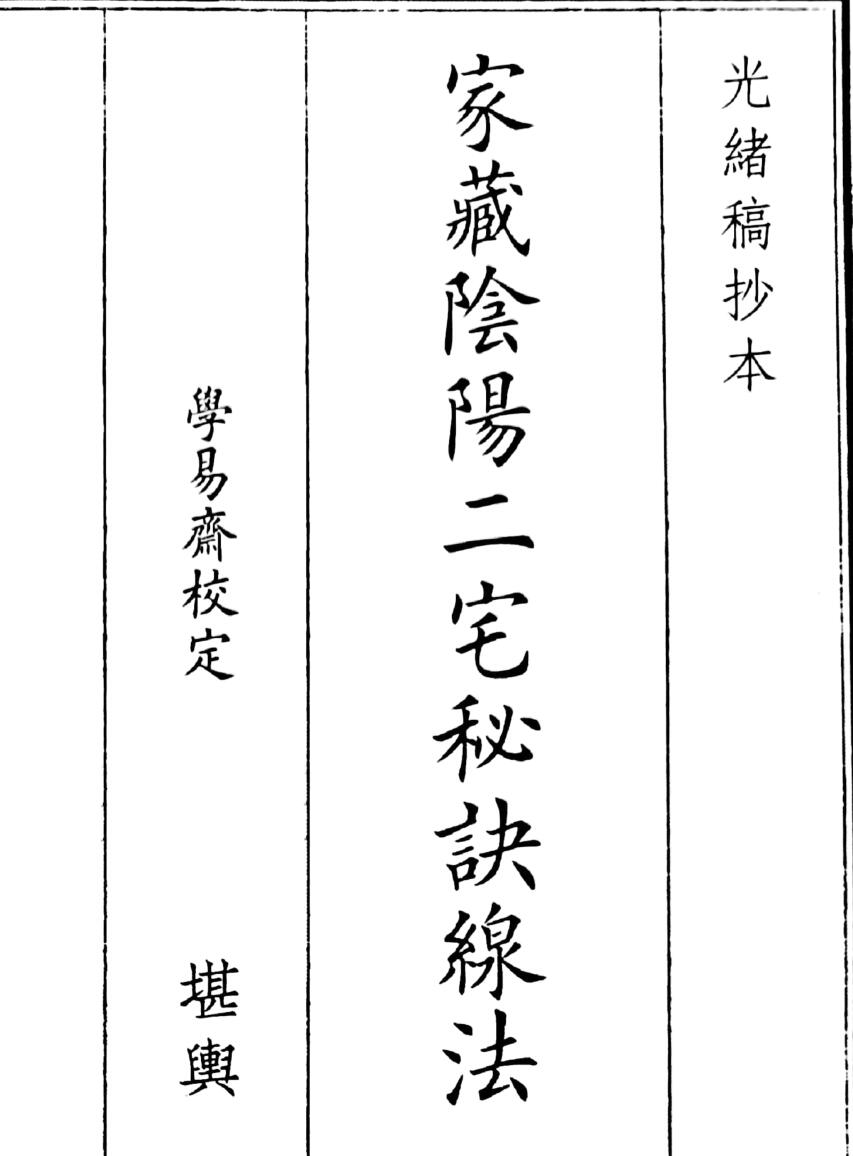 光緒稿抄本
家藏陰陽二宅秘訣線法
學易齋校定
堪輿